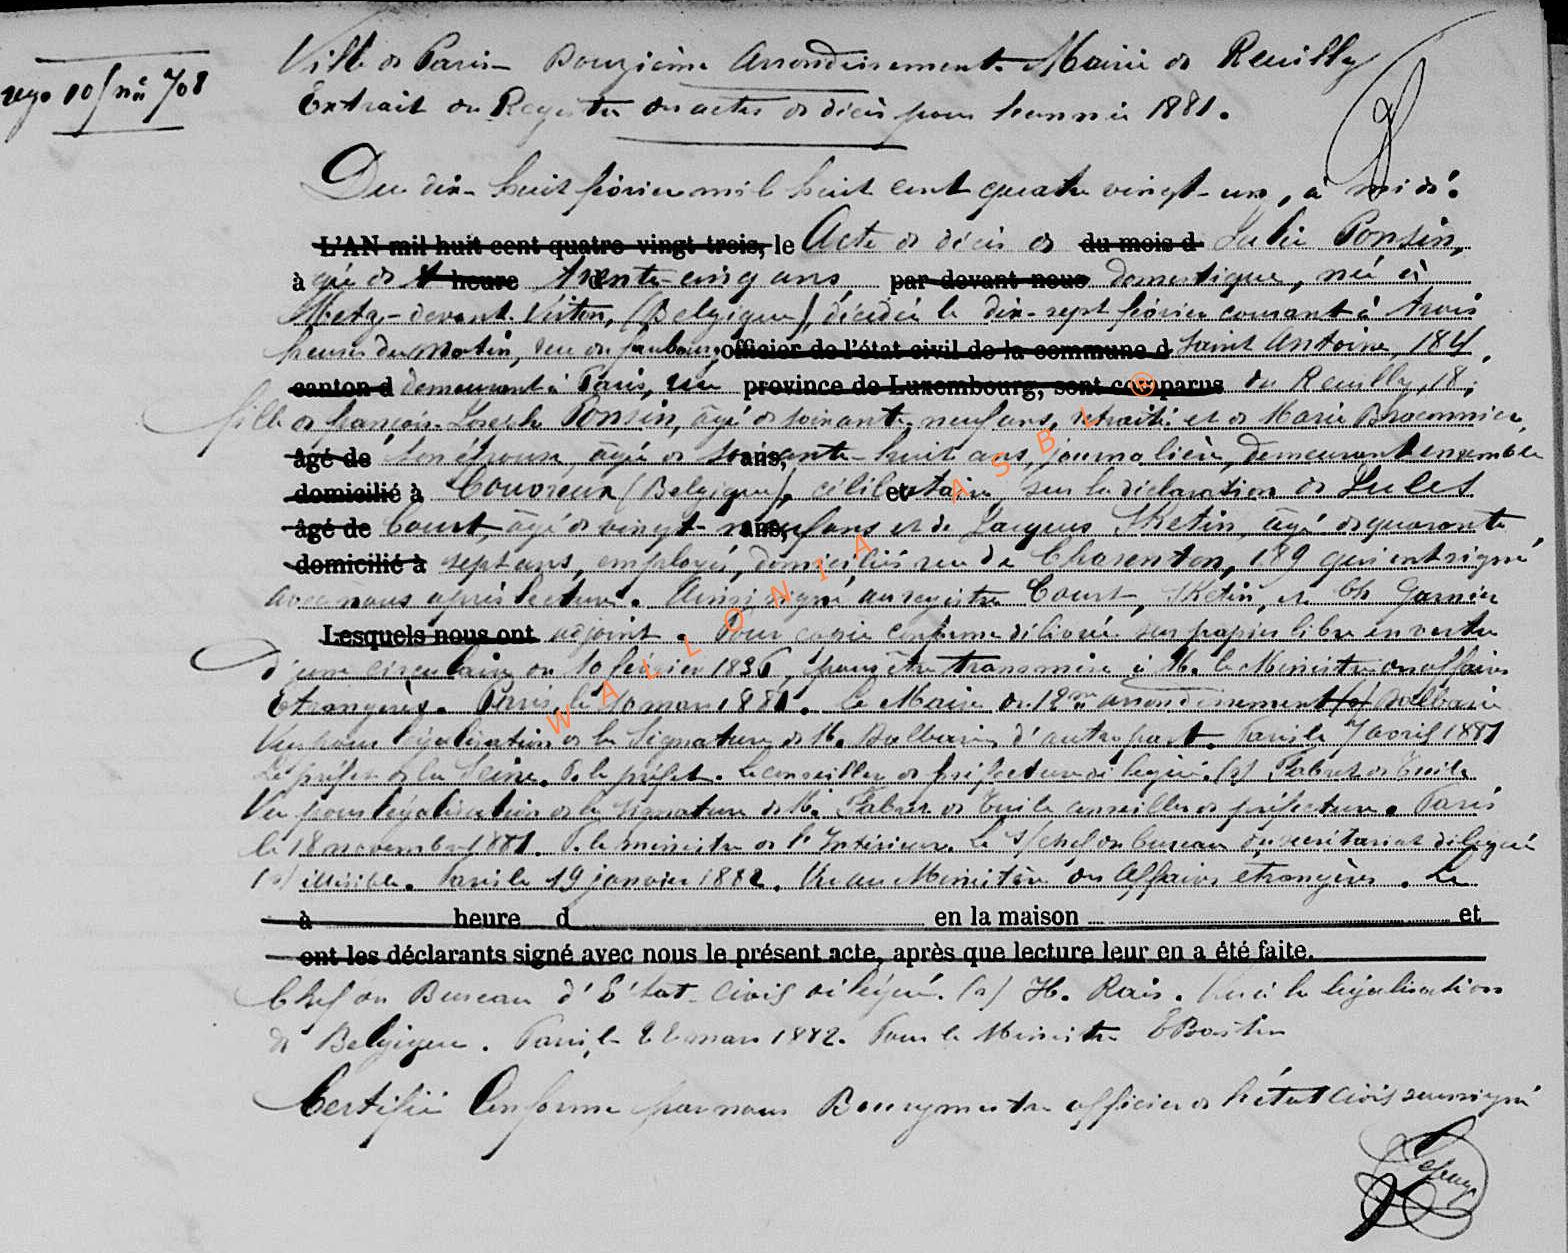 Ville de Paris Douzième Arrondissement Mairie de Reuilly
rege 10 / n° 708
Extrait du Registre des actes de décès pour l'année 1881.
Du dix-huit février mil huit cent quatre vingt-un, à midi.
L'AN mil huit cent quatre-vingt trois, le Acte de décès de du mois d Julie Ponsin,
à gée de heure trente-cinq ans par-devant nous domestique, née à
Metz-devant-Virton, (Belgique), décédée le dix-sept février courant à trois
heures du matin, rue du faubourg officier de l'état civil de la commune d Saint Antoine, 184,
canton d demeurant à Paris, rue province de Luxembourg, sont comparus de Reuilly, 18,
fille de françois-Joseph Ponsin, âgé de soixante-neuf ans, retraité et de Marie
âgé de son épouse, âgée de soixante-huit ans, journalière, demeurant ensemble
domicilié à Couvreux (Belgique), célibataire, sur la déclaration de Jules
âgé de Court, âgé de vingt-neuf ans et de Jacques Sketin, âgé de quarante
domicilié à sept ans, employé, domiciliés rue de Charenton, 189 qui ont signé
avec nous après lecture. Ainsi signé au registre Court, Sketin, et Ch Garnier
Lesquels nous ont adjoint. Pour copie conforme délivrée sur papier libre en vertu
d'une circulaire du 10 février 1836, pour être transmise à M. le Ministre des affaires
Etrangères. Paris, le 10 mars 1881. Le Maire du 12me arrondissement (s)
Vu pour légalisation de la signature de M. d'autre part. Paris le 7 avril 1881
Le préfet de la Seine. P. le préfet. Le conseiller de préfecture délégué. (s)
Vu pour légalisation de la signature de M. conseiller de préfecture. Paris
le 18 novembre 1881. P. le ministre de l'Intérieur. Le s/chef du bureau du secrétariat délégué
(s) illisible. Paris le 19 janvier 1882. Vu au Ministère des Affaires étrangères. Le
à heure d en la maison et
ont les déclarants signé avec nous le présent acte, après que lecture leur en a été faite.
Chef du Bureau d'Etat-Civil délégué. (s) H. Rais. Vu à la légalisation
de Belgique. Paris, le mars 1882. Pour le Ministre E Bastin
Certifié Conforme par nous Bourgmestre officier de l'état civil soussigné
WALLONIA ASBL ®